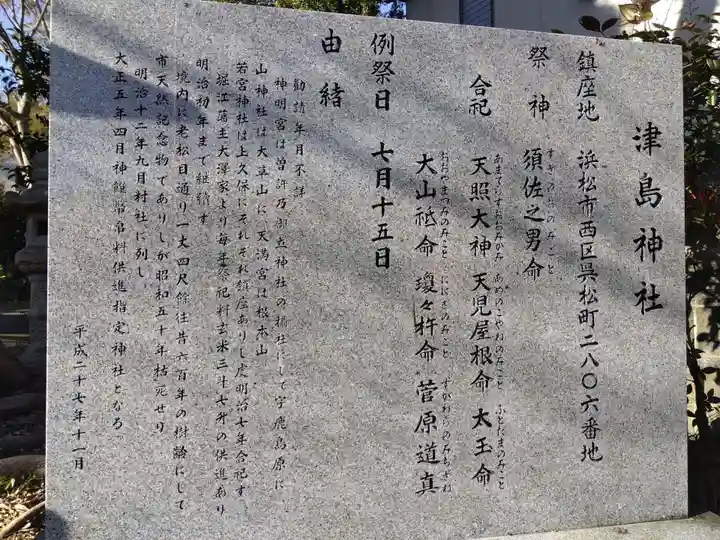 津島神社
鎮座地　浜松市西区呉松町二八〇六番地
祭神　須佐之男命
すさのおのみこと
合祀　天照大神　天児屋根命　太玉命
あまてらすおおみかみ　あめのこやねのみこと　ふとだまのみこと
大山祗命　瓊々杵命　菅原道真
おおやまつみのみこと　ににぎのみこと　すがわらのみちざね
例祭日　七月十五日
由緒
勧請年月不詳
神明宮は曽許乃御立神社の摂社にして字鹿島原に
山神社は大草山に天満宮は根本山
若宮神社は上久保にそれぞれ鎮座ありし処明治七年合祀す
堀江蒲主大澤家より毎年祭祀料玄米三斗七升の供進あり
明治初年まで継続す
境内に老松目通り一丈四尺餘往昔六百年の樹齢にして
市天然記念物でありしが昭和五十年枯死せり
明治十二年九月村社に列し
大正五年四月神饌幣帛料供進指定神社となる
平成二十七年十一月